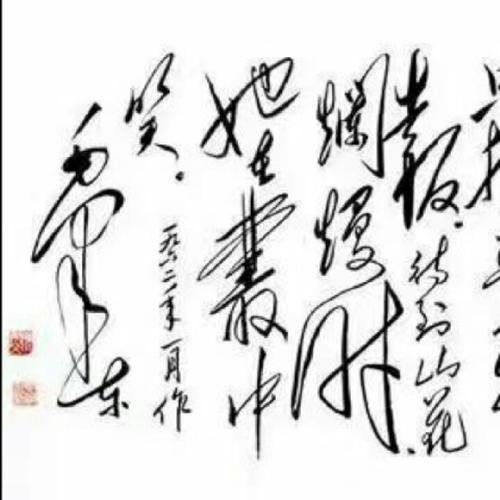 報。待到山花
爛熳时
她在叢中
笑。
一九六二年一月作
毛泽东